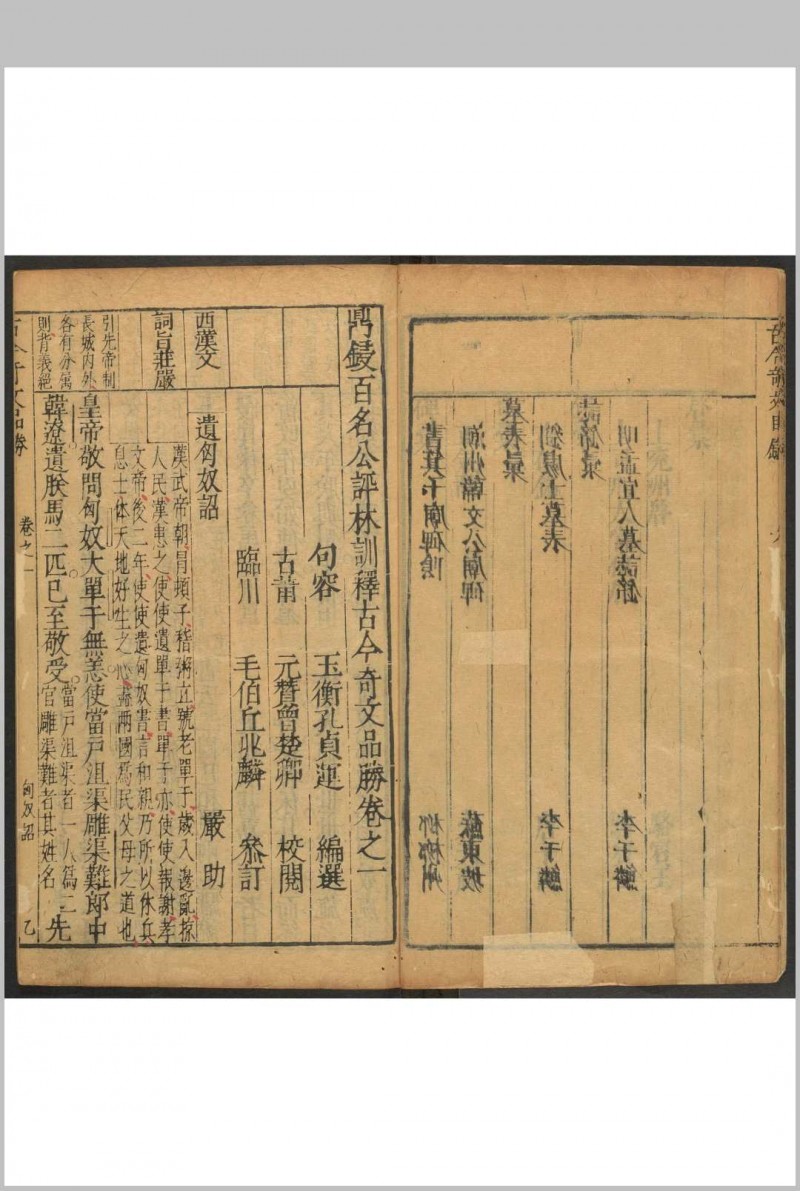 古今奇文目錄
明孟宜人墓誌銘 李于鱗
誌銘彙
劉處士墓表 李于鱗
墓表彙
潮州韓文公廟碑 蘇東坡
書箕子廟碑陰 柳柳州
鼎鋟百名公評林訓釋古今奇文品勝卷之一
句容 玉衡孔貞運 編選
古莆 元贊曾楚卿 校閱
臨川 毛伯丘兆麟 叅訂
西漢文
遺匈奴詔 嚴助
詞旨莊嚴
漢武帝朝冐頓子稽粥立號老單于歲入邊亂掠
人民漢患之使使遺單于書單于亦使使報謝孝
文帝後二年使使遺匈奴書言和親乃所以休兵
息士体天地好生之心盡兩國爲民父母之道也
引先帝制
長城内外
各有分属
則背義絕
皇帝敬問匈奴大單于無恙使當戶沮渠雕渠難郎中
韓遼遺朕馬二匹已至敬受當戶沮渠者一人爲二官雕渠難者其姓名先
古今奇文品勝 卷之一 匈奴詔 乙